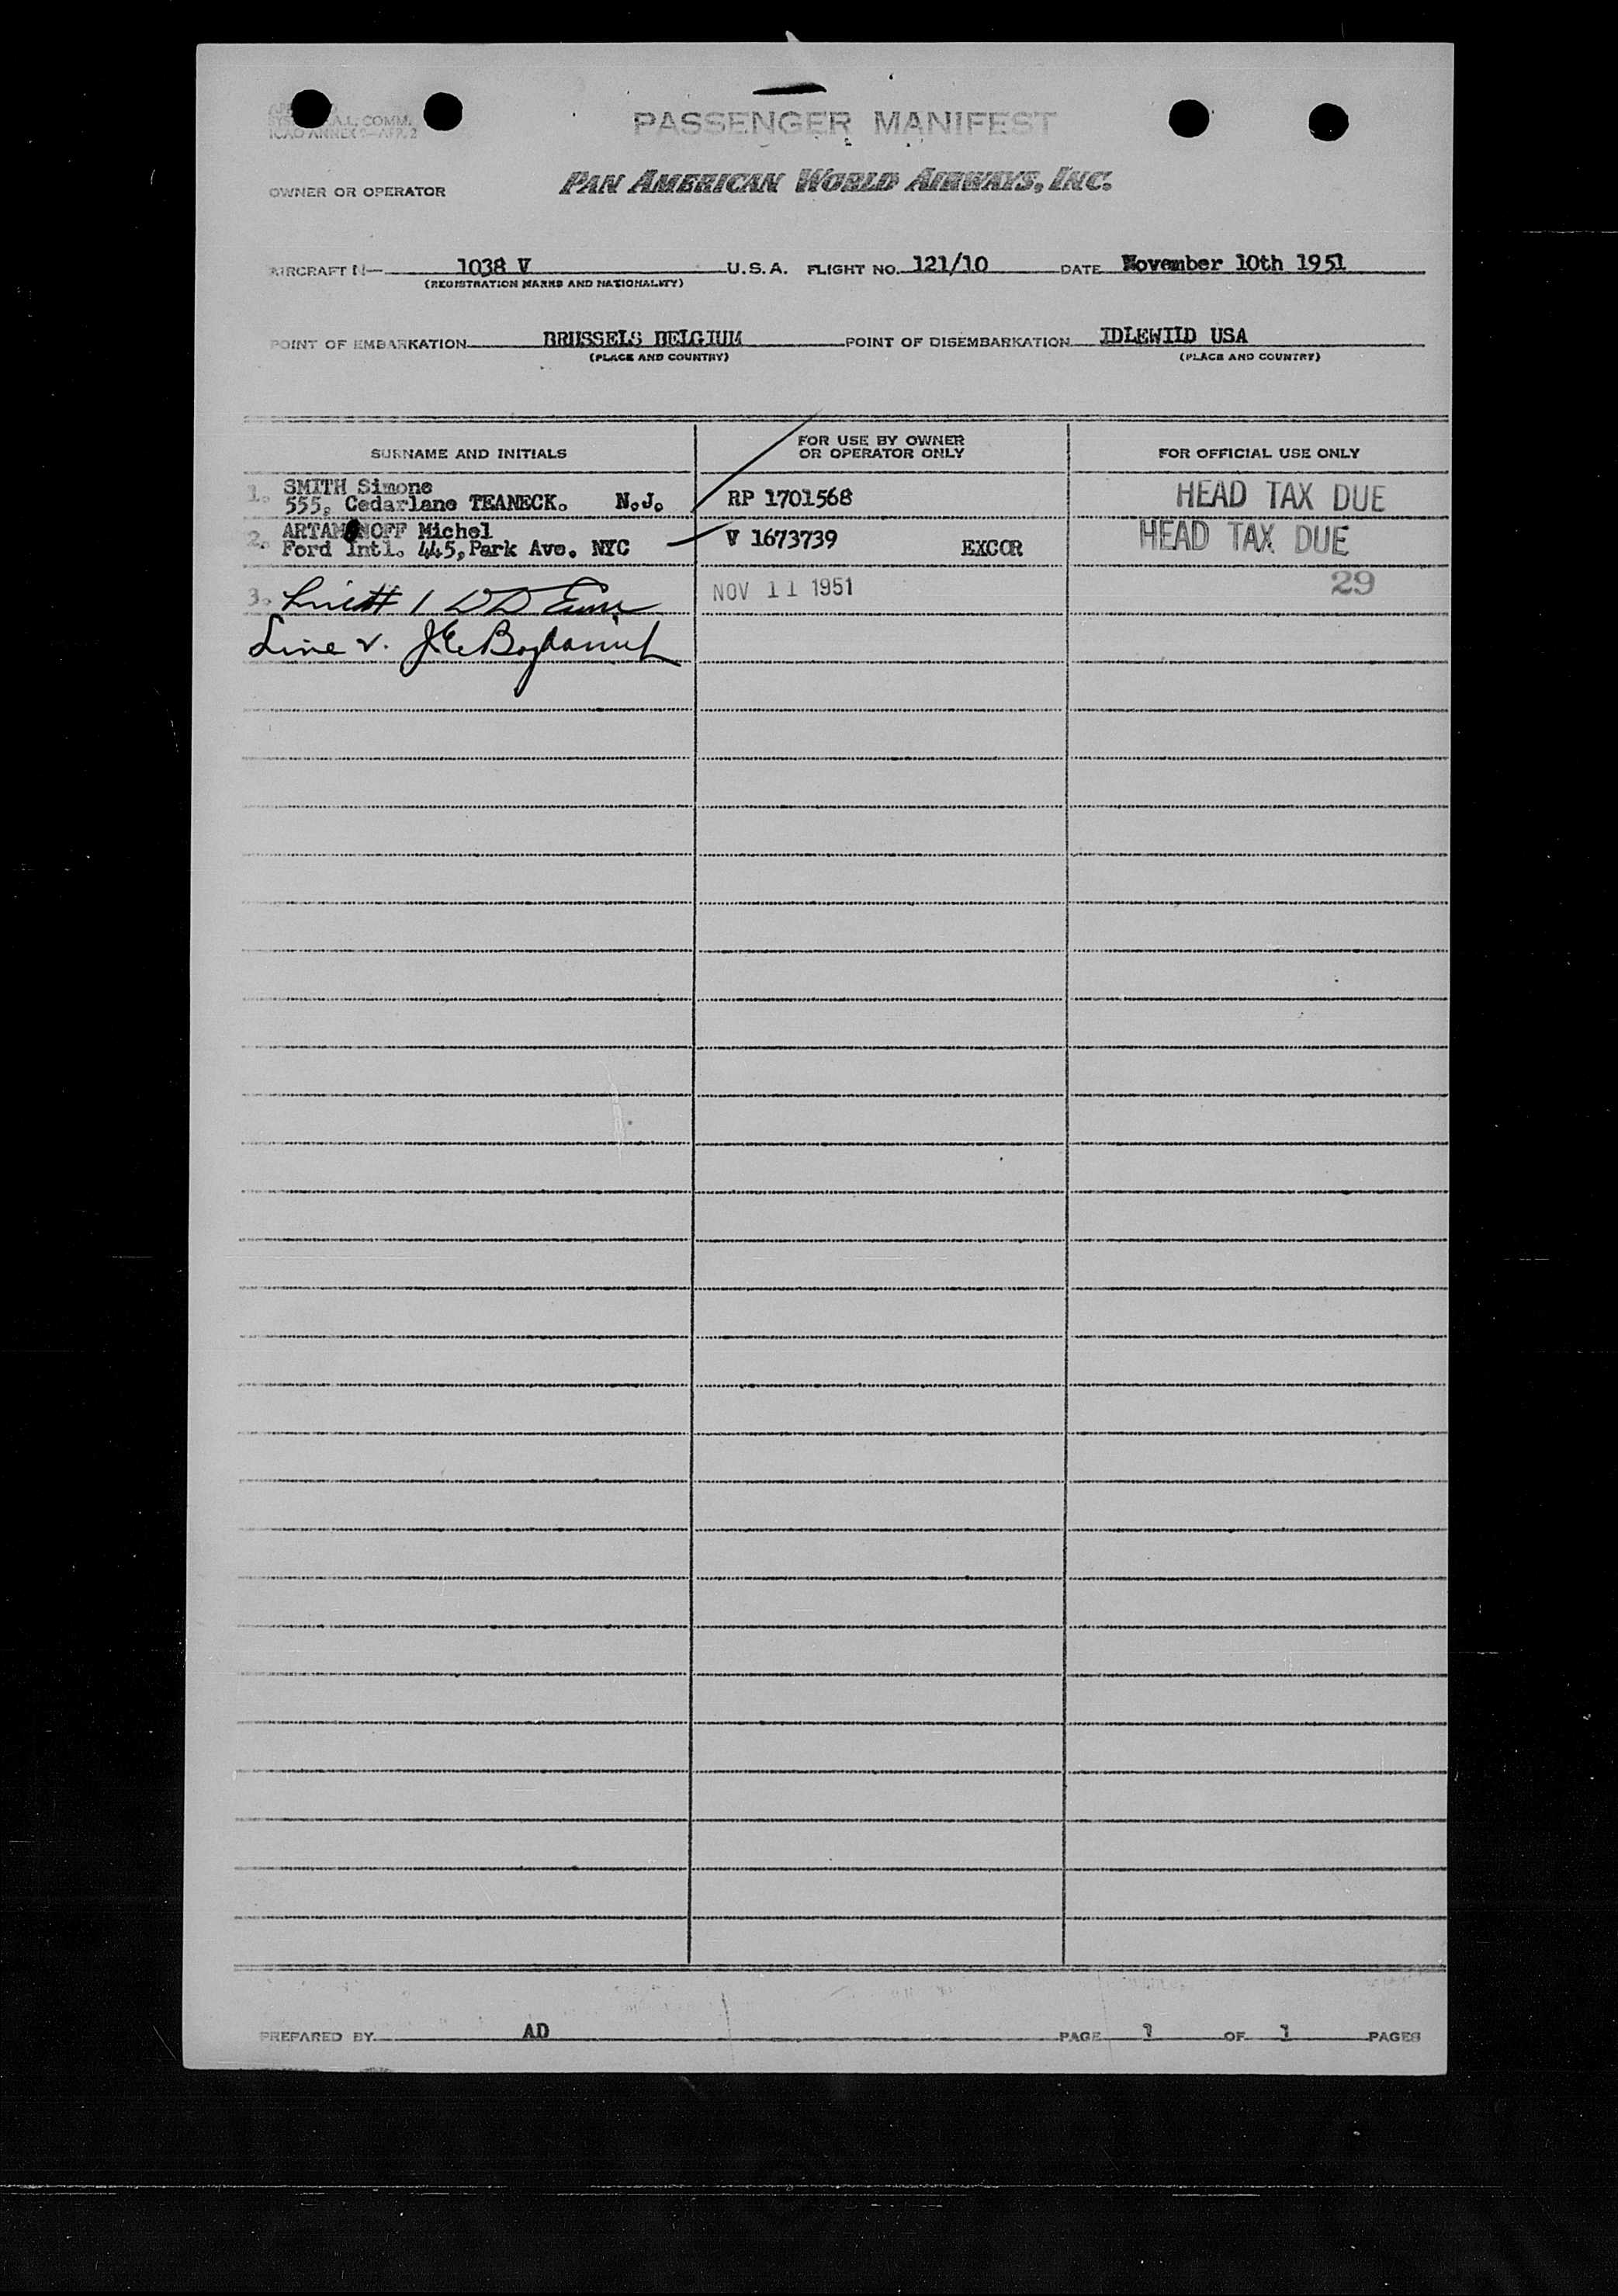 A.L. COMM.
ICAO ANNEX 9—APP. 2
PASSENGER MANIFEST
OWNER OR OPERATOR PAN AMERICAN WORLD AIRWAYS, INC.
AIRCRAFT N— 1038 V U.S.A. FLIGHT NO. 121/10 DATE November 10th 1951
(REGISTRATION MARKS AND NATIONALITY)
POINT OF EMBARKATION BRUSSELS BELGIUM POINT OF DISEMBARKATION IDLEWILD USA
(PLACE AND COUNTRY) (PLACE AND COUNTRY)
SURNAME AND INITIALS FOR USE BY OWNER OR OPERATOR ONLY FOR OFFICIAL USE ONLY
1. SMITH Simone
555, Cedarlane TEANECK. N.J. RP 1701568 HEAD TAX DUE
2. ARTAMONOFF Michel
Ford Intl. 445, Park Ave. NYC V 1673739 EXCOR HEAD TAX DUE
3. 1 NOV 11 1951 29
Line 2.
PREPARED BY AD PAGE 1 OF 1 PAGES